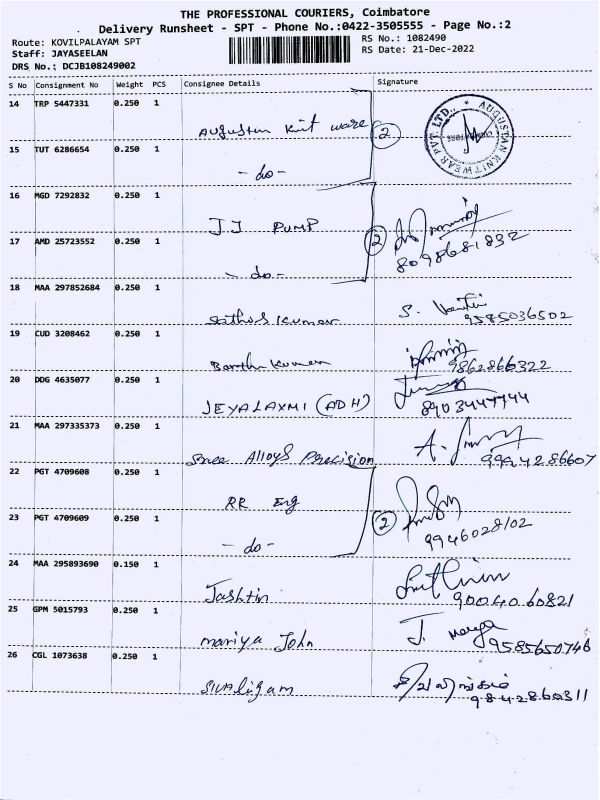 THE PROFESSIONAL COURIERS, Coimbatore
Delivery Runsheet - SPT - Phone No.:0422-3505555 - Page No.:2
Route: KOVILPALAYAM SPT RS No.: 1082490
Staff: JAYASEELAN RS Date: 21-Dec-2022
DRS No.: DCJB108249002
S No Consignment No Weight PCS Consignee Details Signature
14 TRP 5447331 0.250 1
Augustan Knit ware 2
AUGUSTAN KNITWEAR PVT. LTD.,
15 TUT 6286654 0.250 1
- do -
16 MGD 7292832 0.250 1
JJ PUMP
17 AMD 25723552 0.250 1
2 8098681832
- do -
18 MAA 297852684 0.250 1
Sathis Kumar S. 9585036502
19 CUD 3208462 0.250 1
Kumar 9862866322
20 DDG 4635077 0.250 1
JEYALAXMI (ADH) 8903447744
21 MAA 297335373 0.250 1
Sree Alloys Precision 9994286607
22 PGT 4709608 0.250 1
RR Eng
23 PGT 4709609 0.250 1
2 9946028102
- do -
24 MAA 295893690 0.150 1
Jashtin 90040.60821
25 GPM 5015793 0.250 1
mariya John J. 9585650746
26 CGL 1073638 0.250 1
SIVAligam சிவலிங்கம்
9842860311